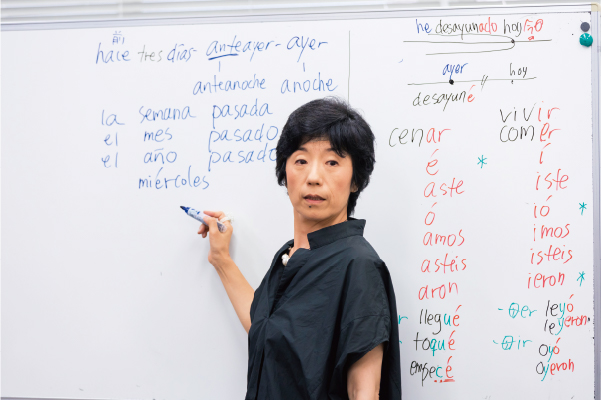 前
hace tres días - anteayer - ayer
anteanoche anoche
la semana pasada
el mes pasado
el año pasado
miércoles
he desayunado hoy
ayer hoy
desayuné
cenar
é
aste
ó
amos
asteis
aron
llegué
toqué
empecé
vivir
comer
í
iste
ió
imos
isteis
ieron
er leyó
leyeron
ir oyó
oyeron